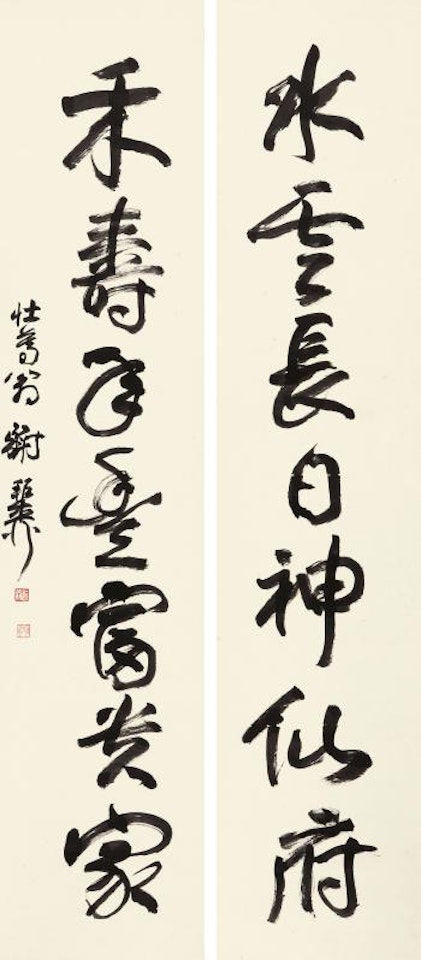 水雲長日神仙府
禾壽年豐富貴家
壯暮翁謝稚柳